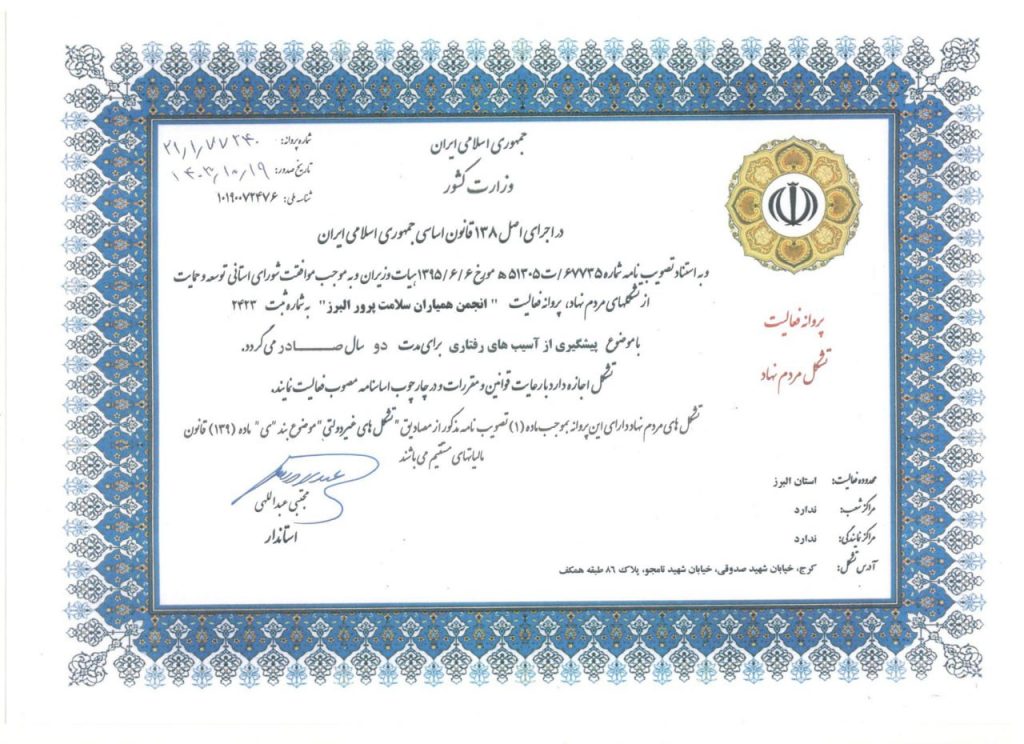 جمهوری اسلامی ایران
وزارت کشور
شماره پروانه: ۲۱/۱/۷۷۲۴۰
تاریخ صدور: ۱۴۰۳/۱۰/۱۹
شناسه ملی: ۱۰۱۹۰۰۷۲۴۷۶
در اجرای اصل ۱۳۸ قانون اساسی جمهوری اسلامی ایران
و به استناد تصویب نامه شماره ۶۷۷۳۵/ت۵۱۳۰۵ه مورخ ۱۳۹۵/۶/۶ هیات وزیران و به موجب موافقت شورای استانی توسعه و حمایت
از تشکلهای مردم نهاد، پروانه فعالیت " انجمن همیاران سلامت پرور البرز " به شماره ثبت ۲۴۲۳
با موضوع پیشگیری از آسیب های رفتاری برای مدت دو سال صادر می گردد.
تشکل اجازه دارد با رعایت قوانین و مقررات و در چارچوب اساسنامه مصوب فعالیت نمایند.
تشکل های مردم نهاد دارای این پروانه بموجب ماده (۱) تصویب نامه مذکور از مصادیق "تشکل های غیردولتی" موضوع بند "ی" ماده (۱۳۹) قانون
مالیاتهای مستقیم می باشند
مجتبی عبداللهی
استاندار
پروانه فعالیت
تشکل مردم نهاد
محدوده فعالیت: استان البرز
مراکز شعب: ندارد
مراکز نمایندگی: ندارد
آدرس تشکل: کرج، خیابان شهید صدوقی، خیابان شهید نامجو، پلاک ۸۶ طبقه همکف